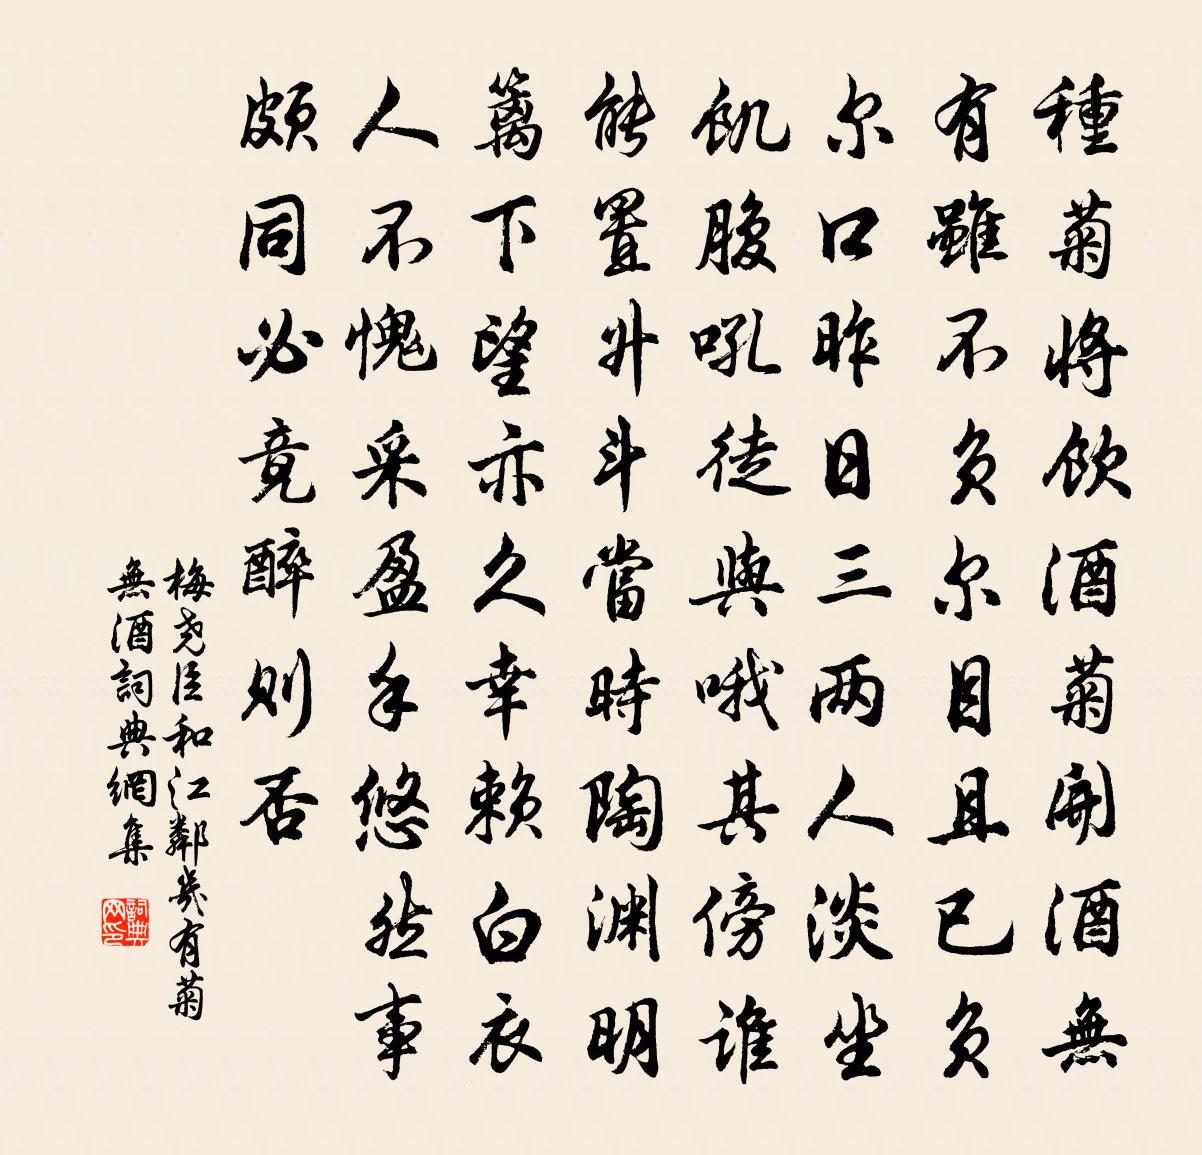 種菊將飲酒菊開酒無
有雖不負尔目且已負
尔口昨日三两人淡坐
飢腹吼徒與哦其傍誰
能置升斗當時陶渊明
籬下望亦久幸賴白衣
人不愧采盈手悠然事
頗同必竟醉则否
梅尧臣和江鄰幾有菊
無酒詞典網集
詞典网印